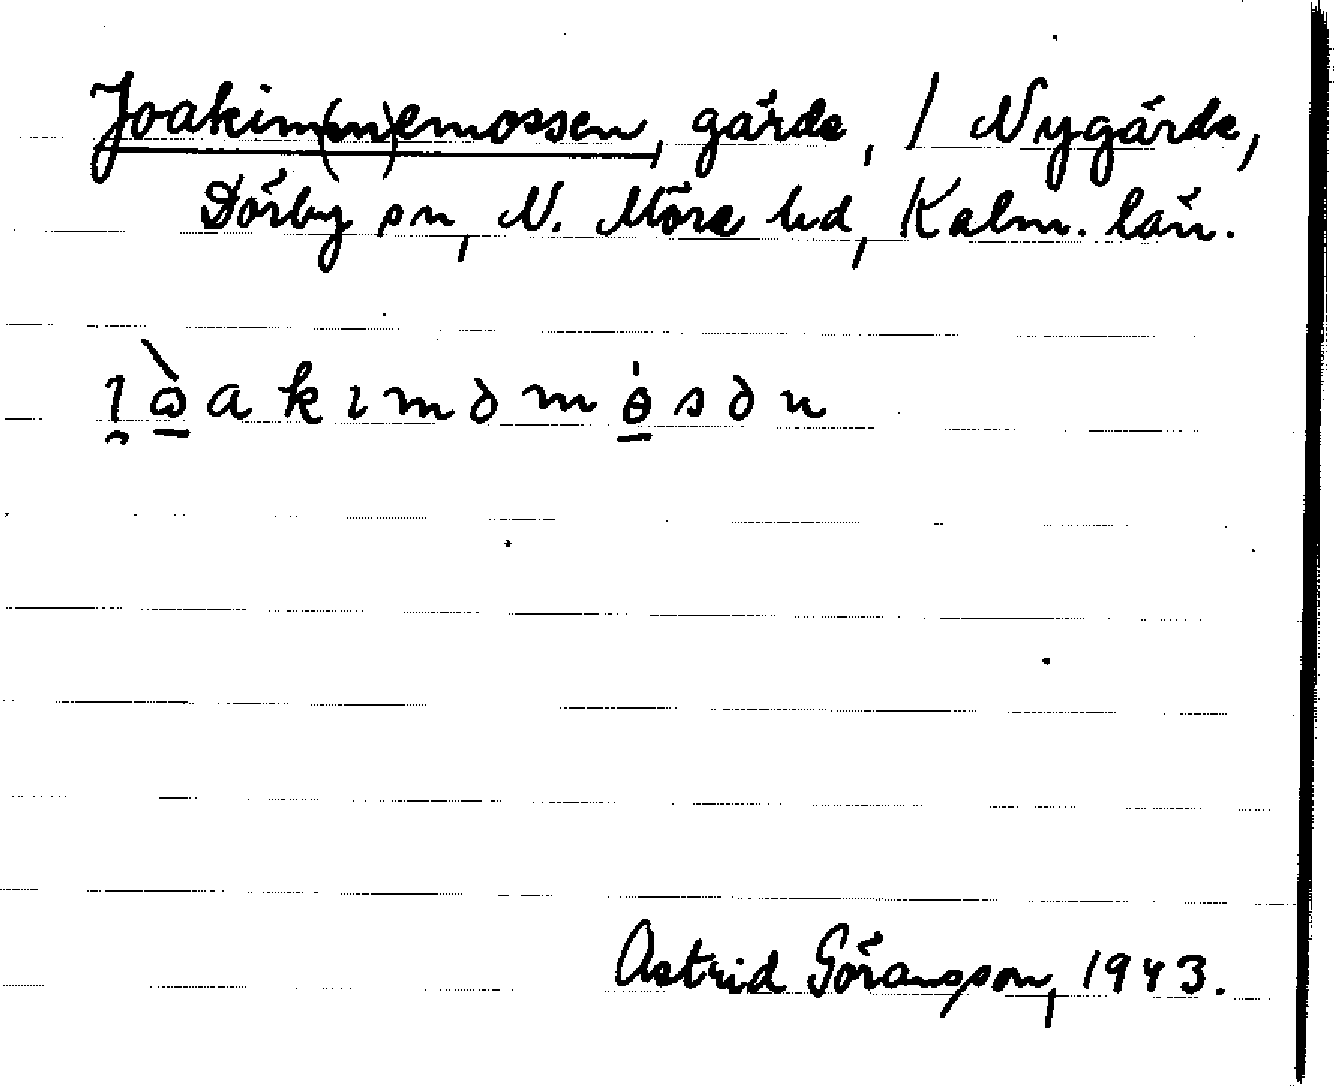 Joakim(m)emossen, gärde, / Nygärde,
Dörby sn, N. Möre hd, Kalm. län.
ɪ̯ɷ̀akɪməmɵ́sən
Astrid Göransson, 1943.